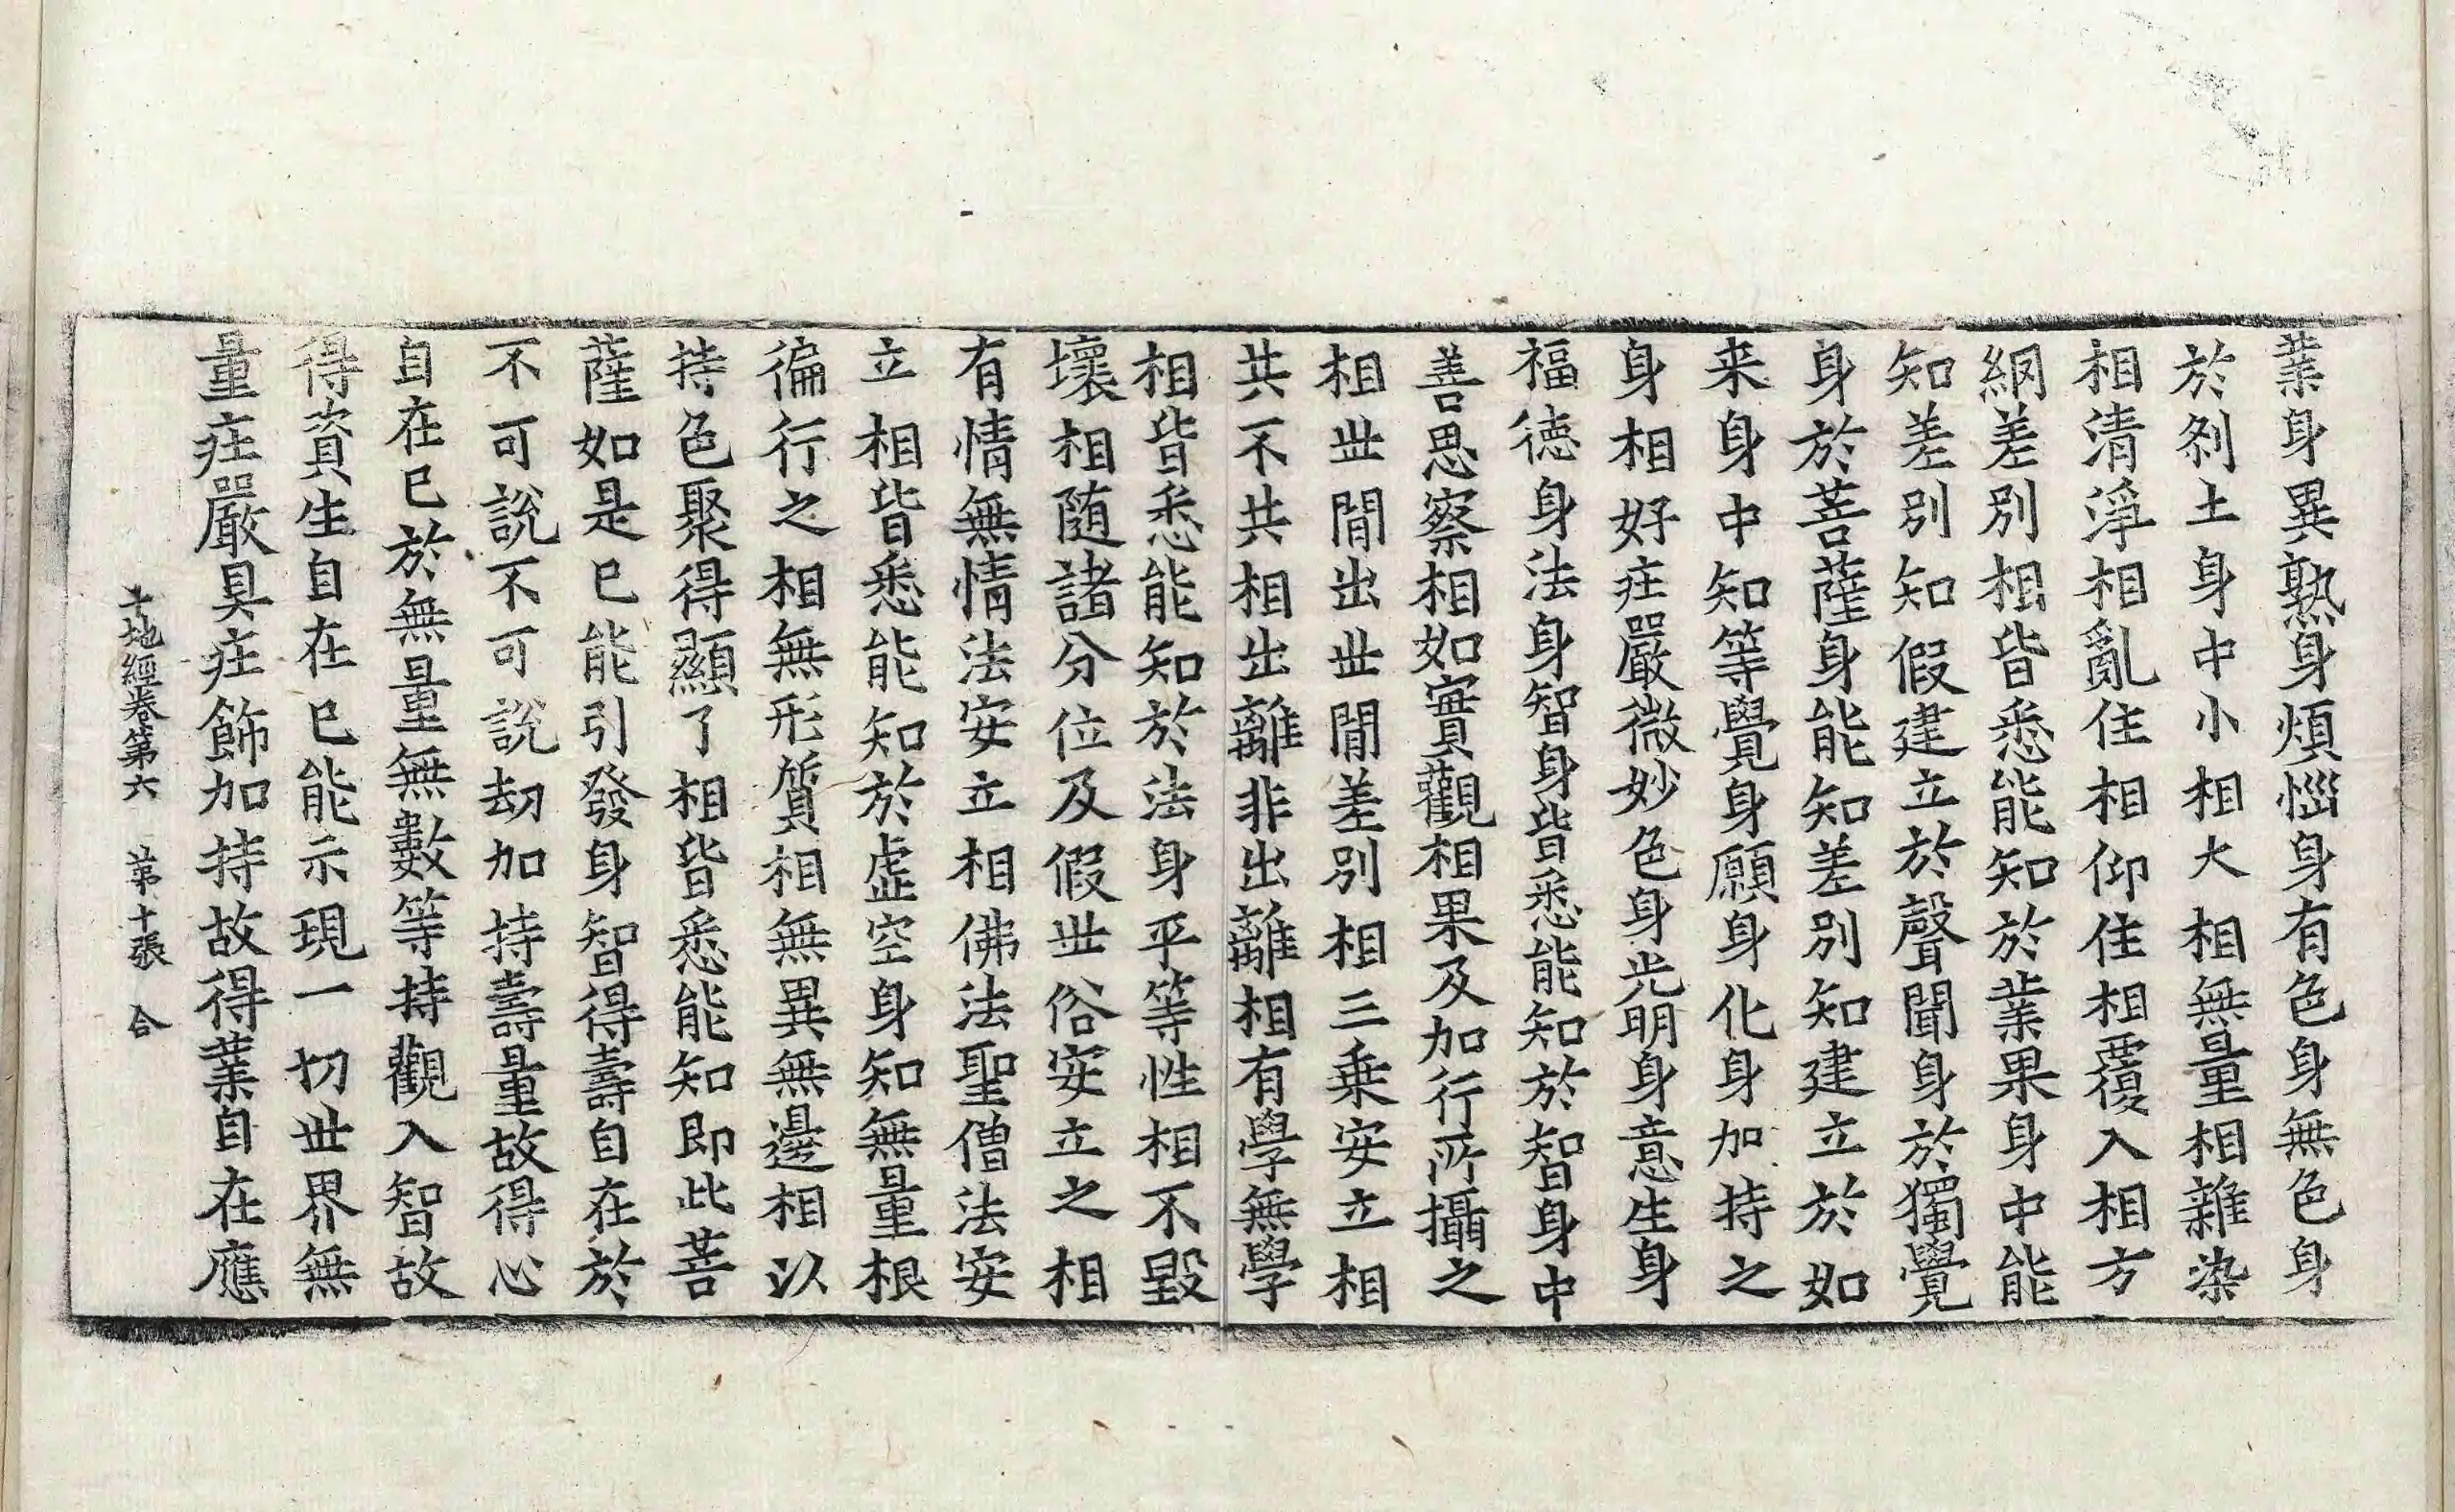 業身異熟身煩惱身有色身無色身
於刹土身中小相大相無量相雜染
相清淨相亂住相仰住相覆入相方
網差別相皆悉能知於業果身中能
知差別知假建立於聲聞身於獨覺
身於菩薩身能知差別知建立於如
来身中知等覺身願身化身加持之
身相好庄嚴微妙色身光明身意生身
福德身法身智身皆悉能知於智身中
善思察相如實觀相果及加行所攝之
相世間出世間差別相三乗安立相
共不共相出離非出離相有學無學
相皆悉能知於法身平等性相不毀
壞相随諸分位及假世俗安立之相
有情無情法安立相佛法聖僧法安
立相皆悉能知於虛空身知無量根
徧行之相無形質相無異無邊相以
持色聚得顯了相皆悉能知即此菩
薩如是已能引發身智得壽自在於
不可說不可說劫加持壽量故得心
自在已於無量無數等持觀入智故
得資生自在已能示現一切世界無
量庄嚴具庄飾加持故得業自在應
十地經卷第六 第十張 合